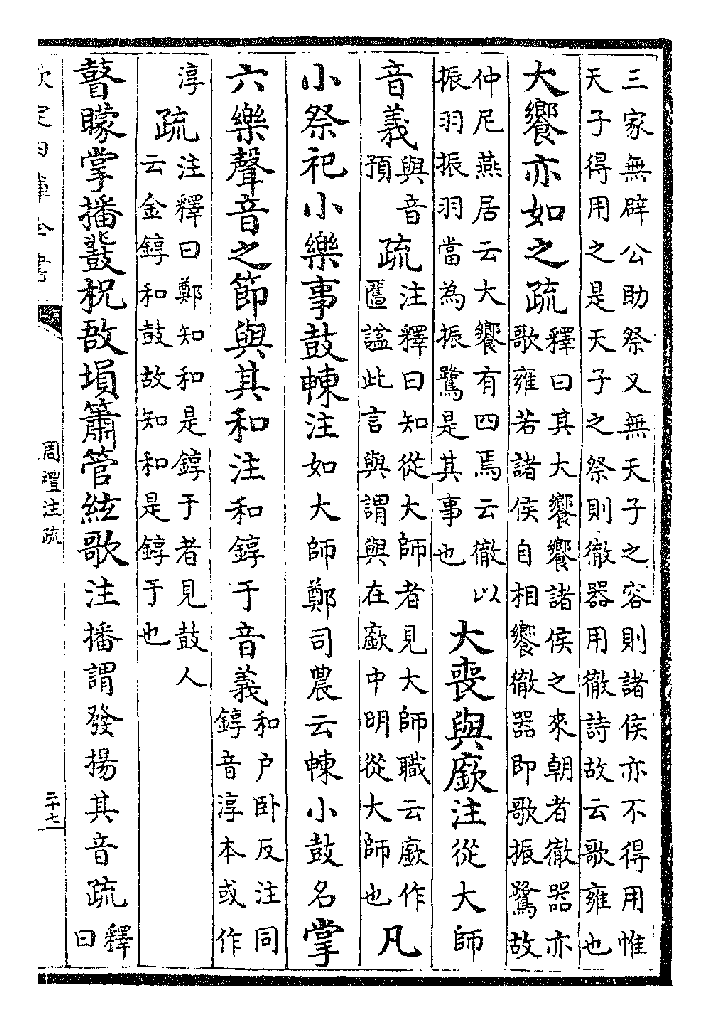 三家無辟公助祭又無天子之容則諸侯亦不得用惟
天子得用之是天子之祭則徹器用徹詩故云歌雍也
大饗亦如之疏釋曰其大饗饗諸侯之來朝者徹器亦
歌雍若諸侯自相饗徹器即歌振鷺故
仲尼燕居云大饗有四焉云徹以
振羽振羽當為振鷺是其事也
大喪與廞注從大師
音義與音
預
疏注釋曰知從大師者見大師職云廞作
匶諡此言與謂與在廞中明從大師也
凡
小祭祀小樂事鼓㯥注如大師鄭司農云㯥小鼓名掌
六樂聲音之節與其和注和錞于音義和户卧反注同
錞音淳本或作
淳
疏注釋曰鄭知和是錞于者見鼓人
云金錞和鼓故知和是錞于也
瞽矇掌播鼗柷敔塤簫管絃歌注播謂發揚其音疏釋
曰
欽定四庫全書
周禮注疏
二十七